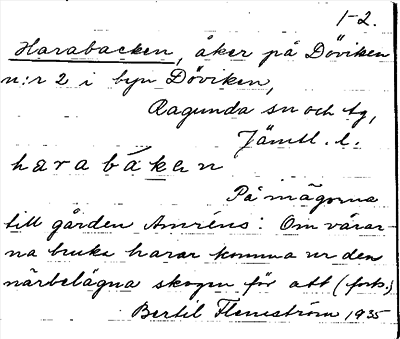 1-2.
Harabacken, åker på Döviken
n:r 2 i byn Döviken,
Ragunda sn och tg,
Jämtl. l.
harabákan
På mägorna
till gården Amréns: Om vårar-
na bruka harar komma ur den
närbelägna skogen för att (forts.)
Bertil Flemström 1935